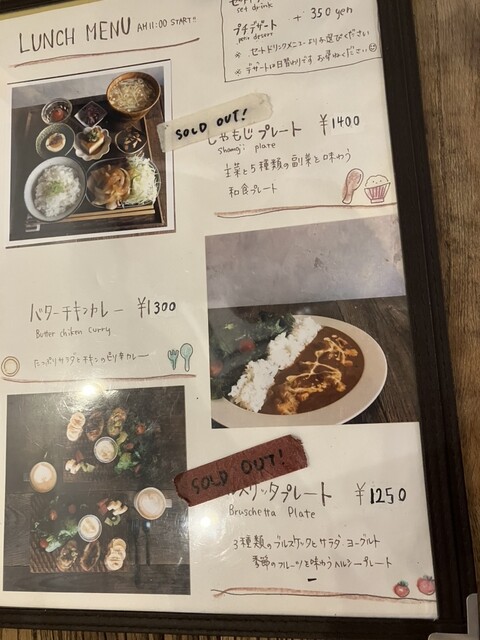 LUNCH MENU AM11:00 START!!
セットドリンク
set drink
プチデザート + 350 yen
petit dessert
※ セットドリンクメニューよりお選びください
※ デザートは日替わりです お尋ねください
SOLD OUT!
しゃもじプレート ¥1400
Shamoji plate
主菜と5種類の副菜を味わう
和食プレート
バターチキンカレー ¥1300
Butter chiken curry
たっぷりサラダとチキンのピリ辛カレー
SOLD OUT!
スケッタプレート ¥1250
Bruschetta Plate
3種類のブルスケッタとサラダ、ヨーグルト
季節のフルーツを味わうヘルシープレート